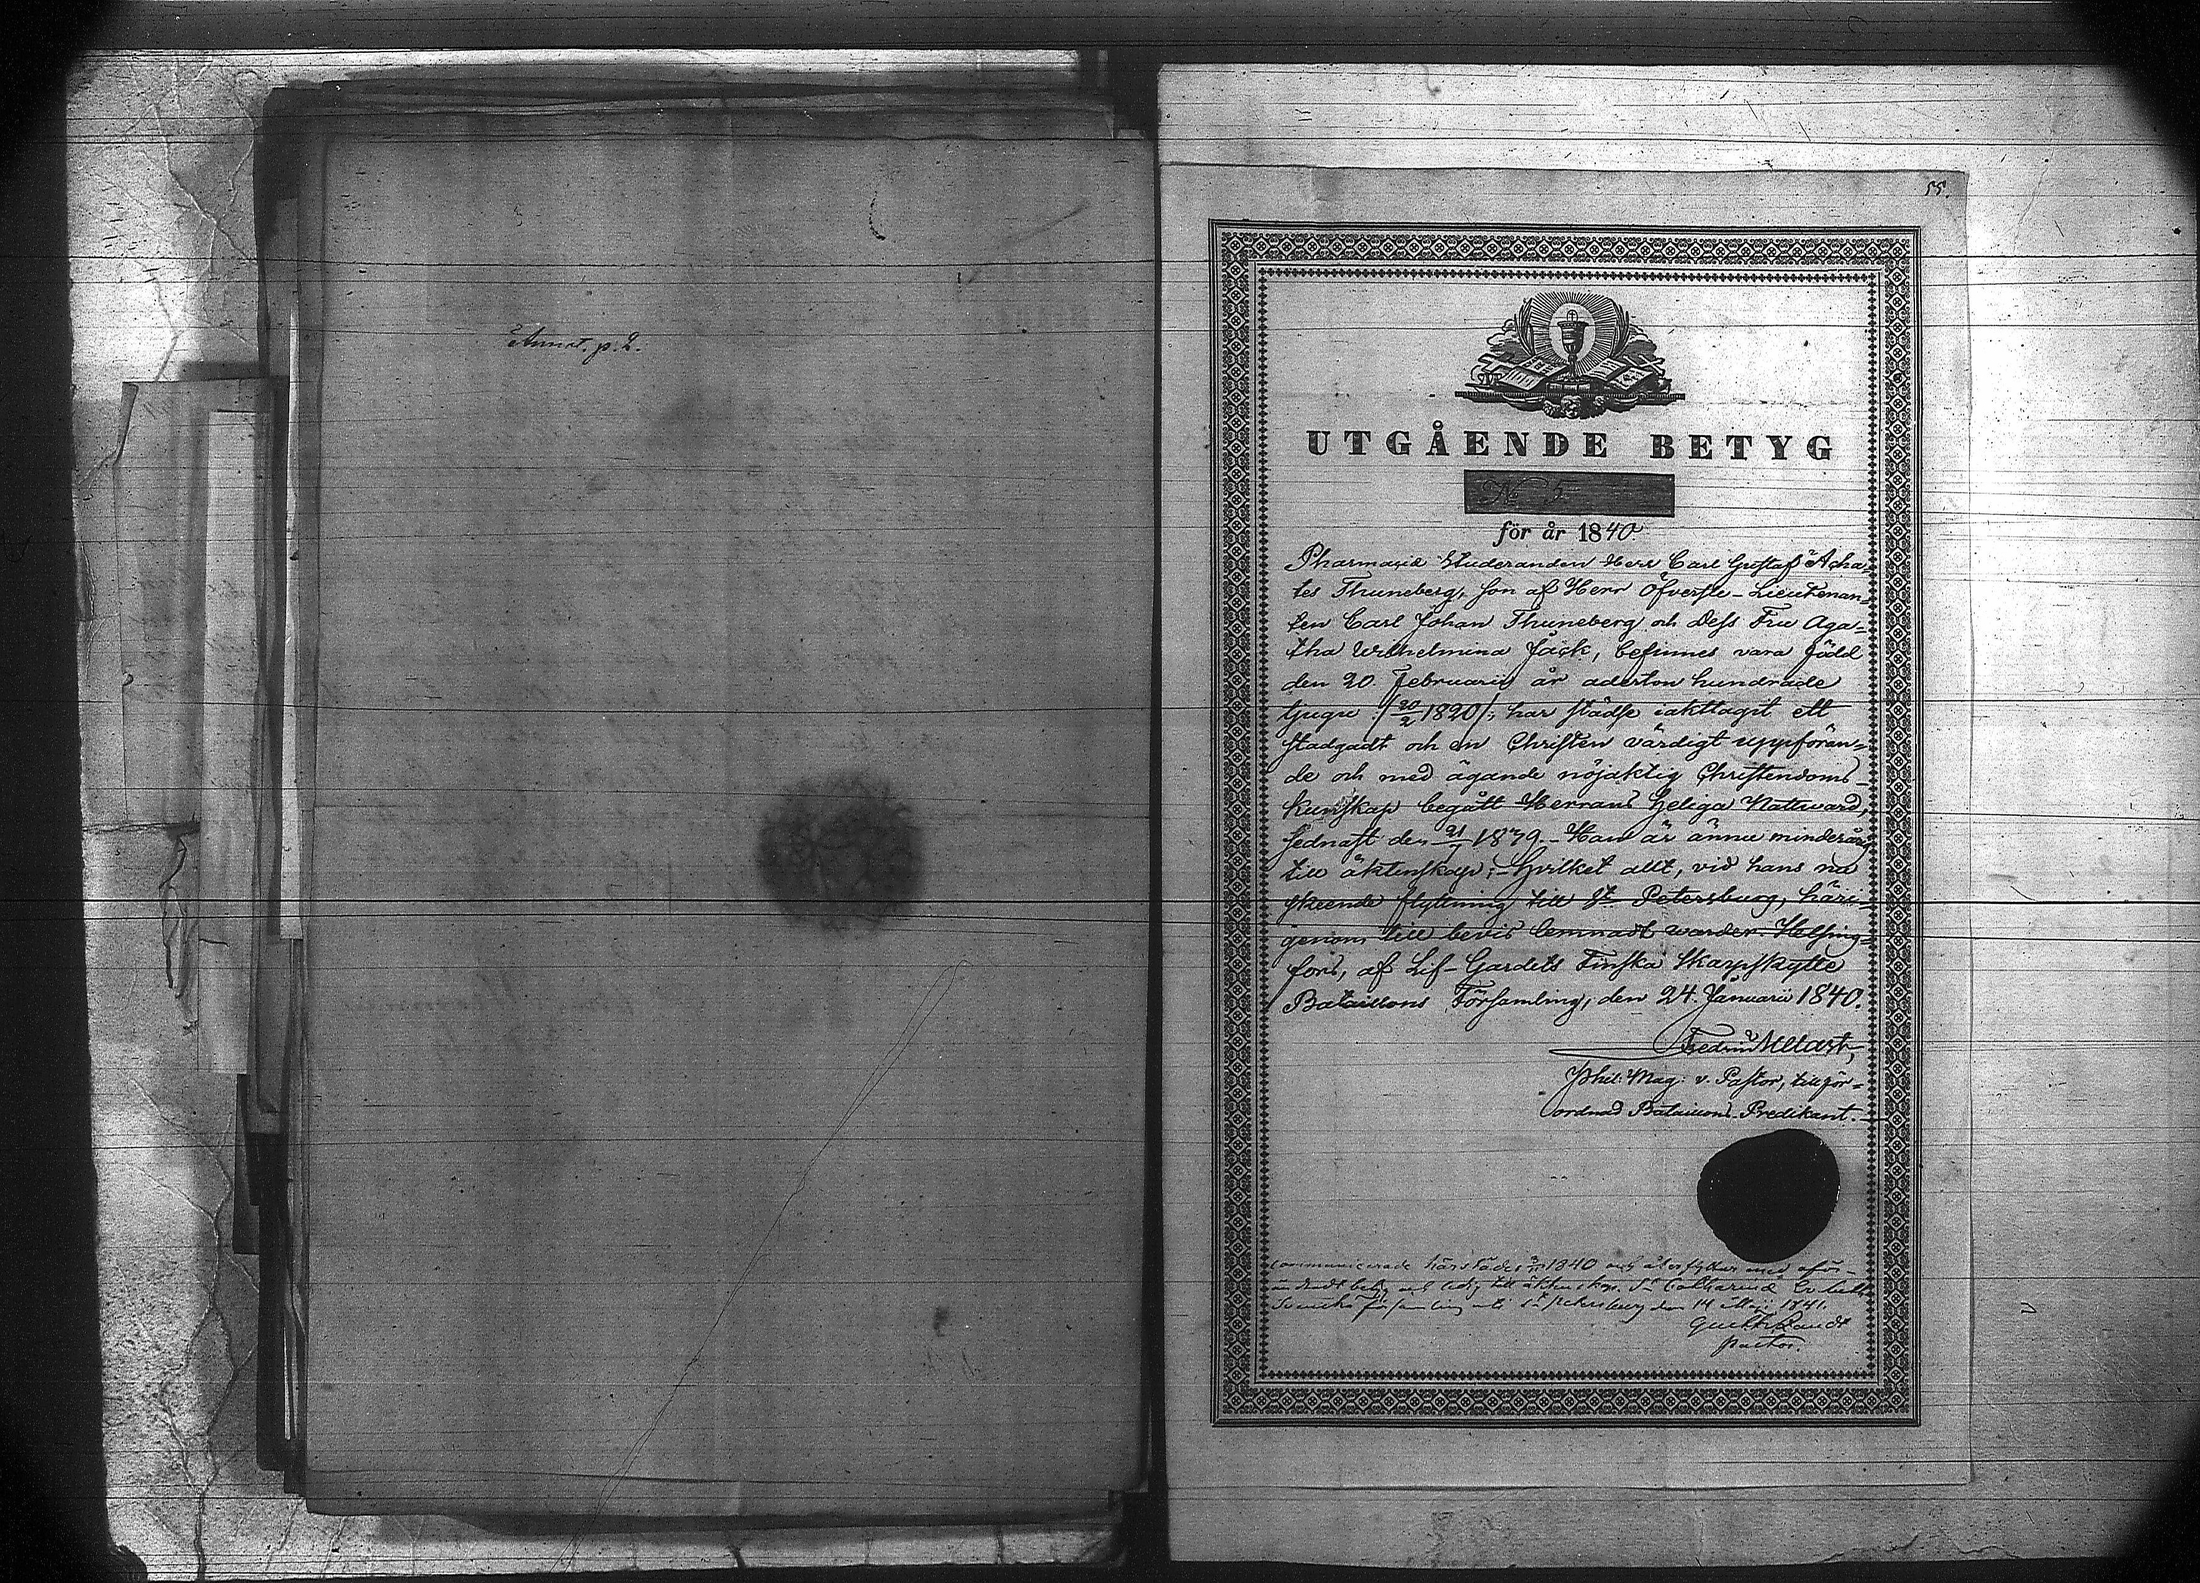 Annot. p. 2.
55.
UTGÅENDE BETYG
No 5
för år 1840
Pharmaciæ Studeranden Herr Carl Gustaf Acha-
tes Thuneberg, son af Herr Öfverste-Lieutenan-
ten Carl Johan Thuneberg och Dess Fru Aga-
tha Wilhelmina Jäck, befinnes vara född
den 20. Februarii år aderton hundrade
tjugu /20/2 1820/; har städse iakttagit ett
stadgadt och en Christen värdigt uppföran-
de och med ägande nöjaktig Christendoms-
kunskap begått Herrans Heliga Nattvard,
sednast den 21/ 1839. Han är ännu minderårig
till äktenskap; Hvilket allt, vid hans nu
skeende flyttning till St Petersburg, häri-
genom till bevis lemnadt warder. Helsing-
fors, af Lif-Gardets Finska Skarpskytte
Bataillons Församling, den 24. Januarii 1840.
Phil: Mag: v. Pastor, tillför-
ordnad Bataillons-Predikant.
communicerade härstädes 1840 och återflyttar med oför-
ändradt betyg och ledig till äktenskap. St Catharinæ
Svenska församling uti St Petersburg den 14 Maji 1841.
pastor.